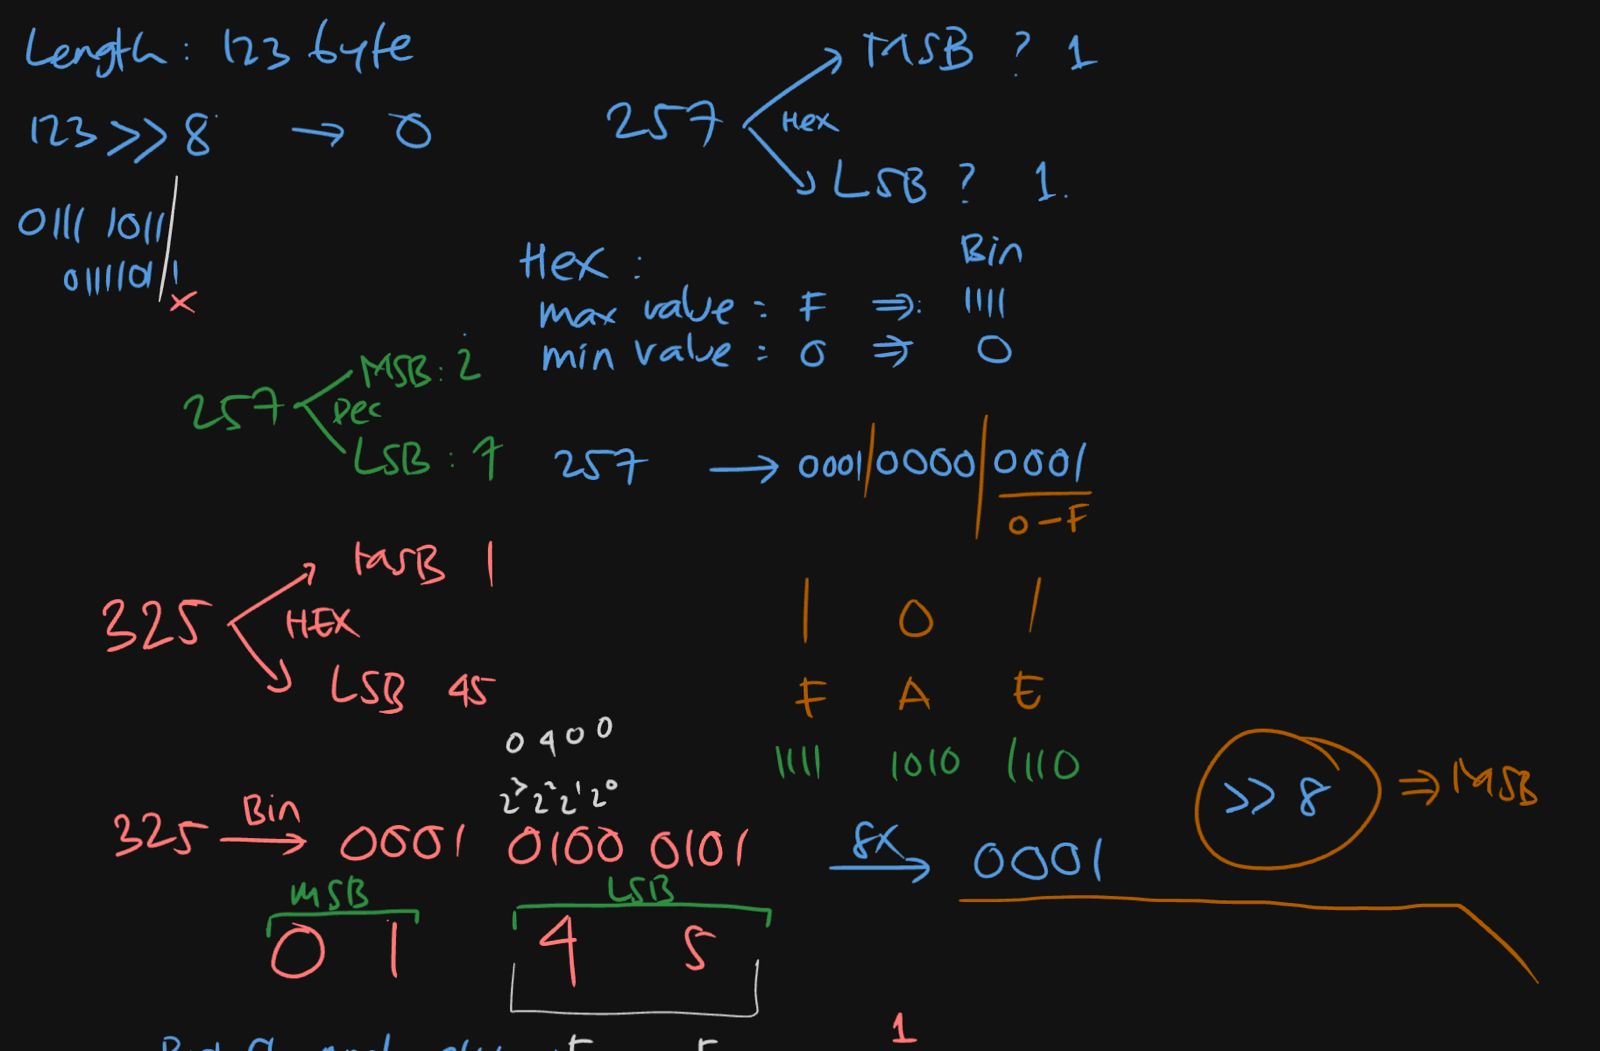 Length: 123 byte
123 >> 8 → 0
0111 1011
0111101 1
x
257
Hex
MSB ? 1
LSB ? 1.
Hex :
Bin
max value = F ⇒ 1111
min value = 0 ⇒ 0
257
Dec
MSB: 2
LSB: 7
257 → 0001 0000 0001
0-F
1 0 1
F A E
1111 1010 1110
325
HEX
MSB 1
LSB 45
0 4 0 0
2³ 2² 2¹ 2⁰
325 Bin → 0001 0100 0101
8x → 0001
>> 8 ⇒ MSB
MSB
LSB
0 1 4 5
1